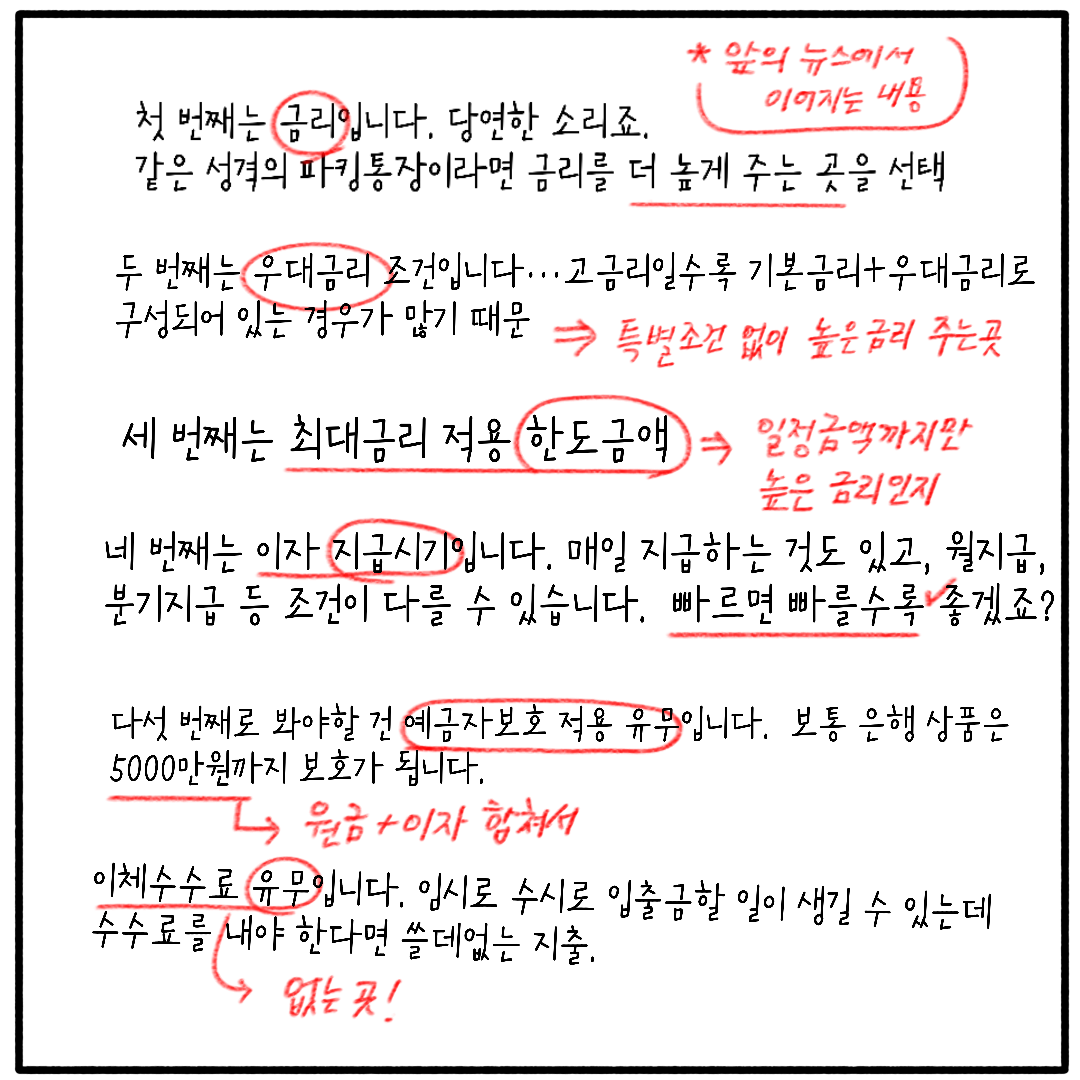 * 앞의 뉴스에서
이어지는 내용
첫 번째는 금리입니다. 당연한 소리죠.
같은 성격의 파킹통장이라면 금리를 더 높게 주는 곳을 선택
두 번째는 우대금리 조건입니다...고금리일수록 기본금리+우대금리로
구성되어 있는 경우가 많기 때문
⇒ 특별조건 없이 높은금리 주는곳
세 번째는 최대금리 적용 한도금액
⇒ 일정금액까지만
높은 금리인지
네 번째는 이자 지급시기입니다. 매일 지급하는 것도 있고, 월지급,
분기지급 등 조건이 다를 수 있습니다. 빠르면 빠를수록 좋겠죠?
다섯 번째로 봐야할 건 예금자보호 적용 유무입니다. 보통 은행 상품은
5000만원까지 보호가 됩니다.
원금+이자 합쳐서
이체수수료 유무입니다. 임시로 수시로 입출금할 일이 생길 수 있는데
수수료를 내야 한다면 쓸데없는 지출.
없는 곳!